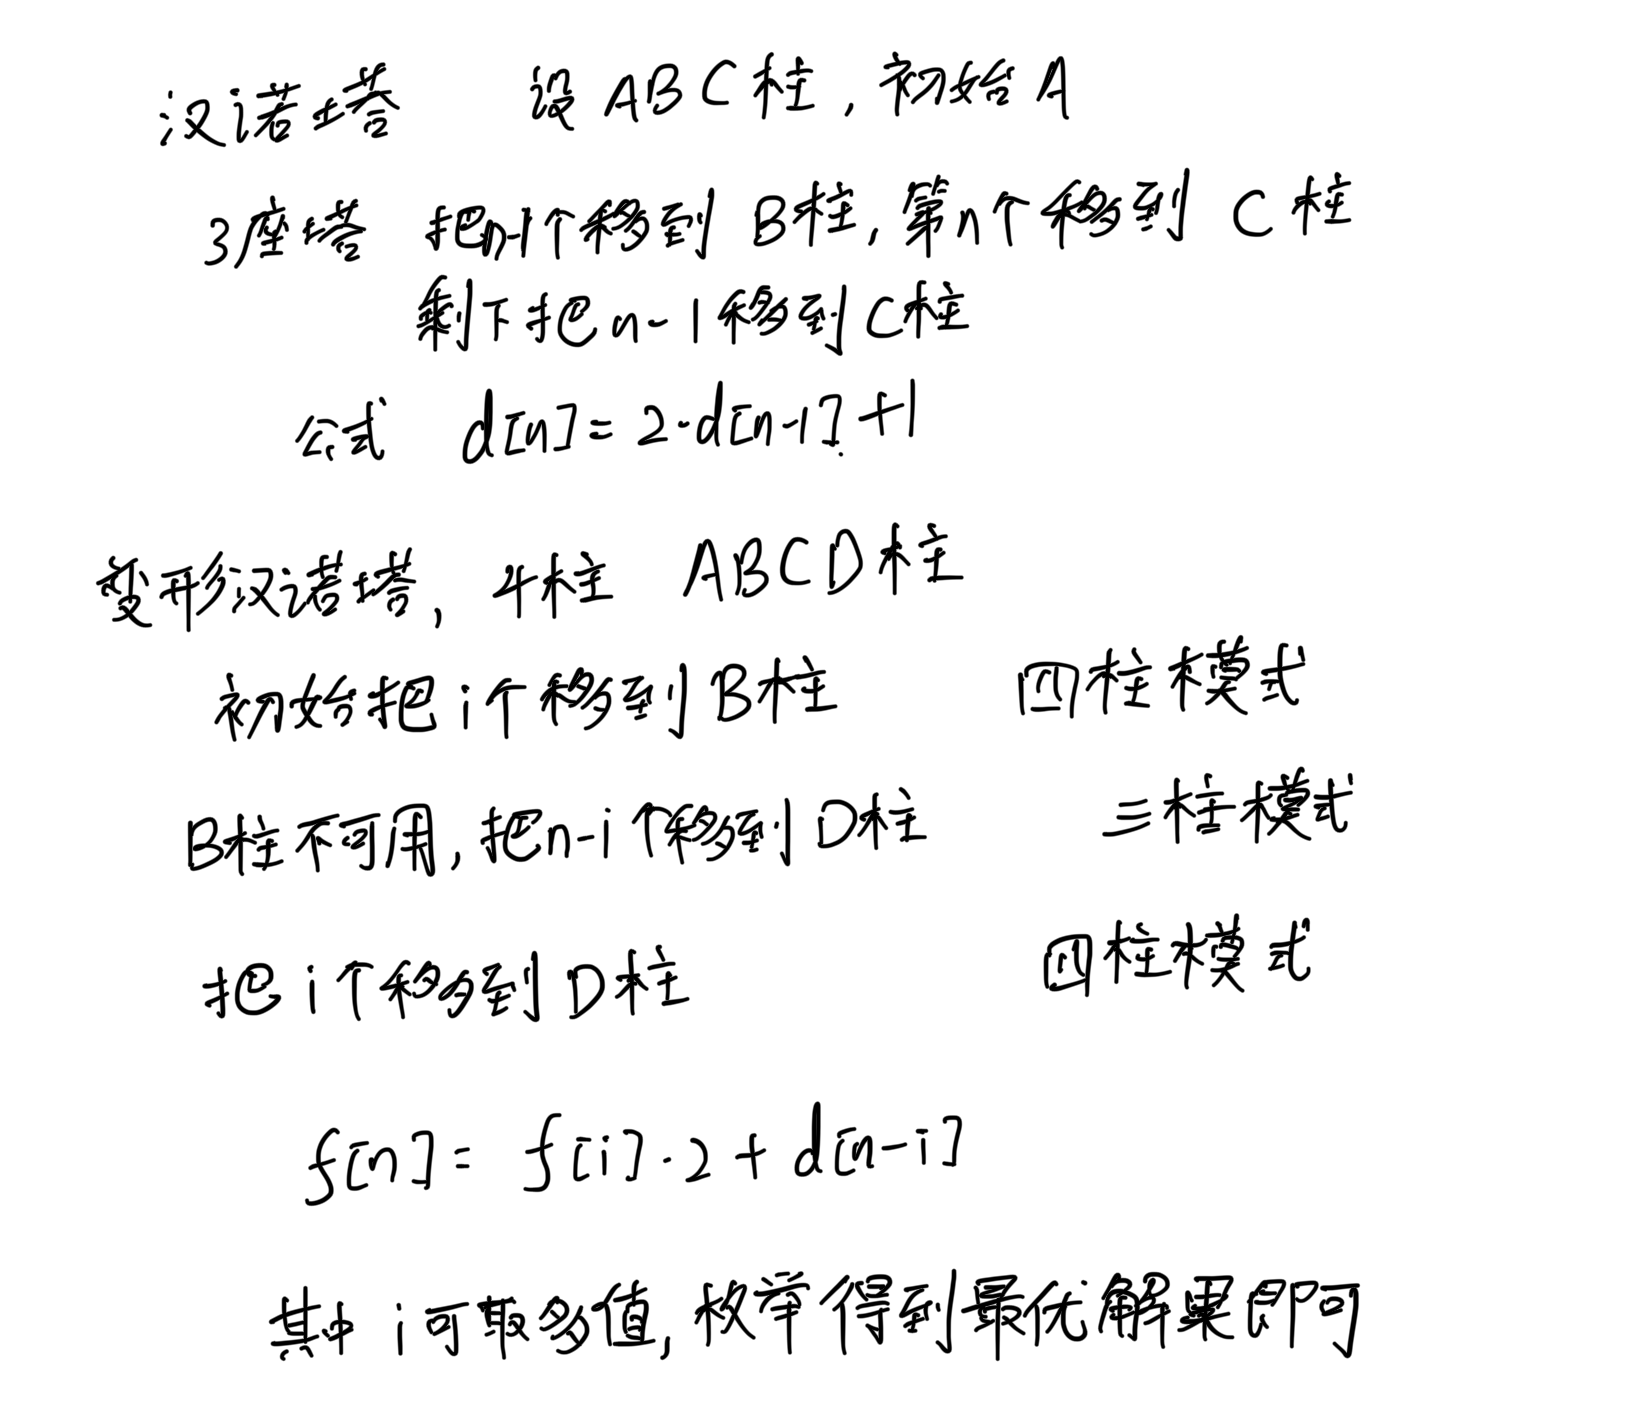 汉诺塔 设ABC柱,初始A
3座塔 把n-1个移到B柱,第n个移到C柱
剩下把n-1移到C柱
公式 d[n]=2·d[n-1]+1
变形汉诺塔,4柱 ABCD柱
初始把i个移到B柱 四柱模式
B柱不可用,把n-i个移到D柱 三柱模式
把i个移到D柱 四柱模式
f[n]= f[i]·2+d[n-i]
其中i可取多值,枚举得到最优解果即可